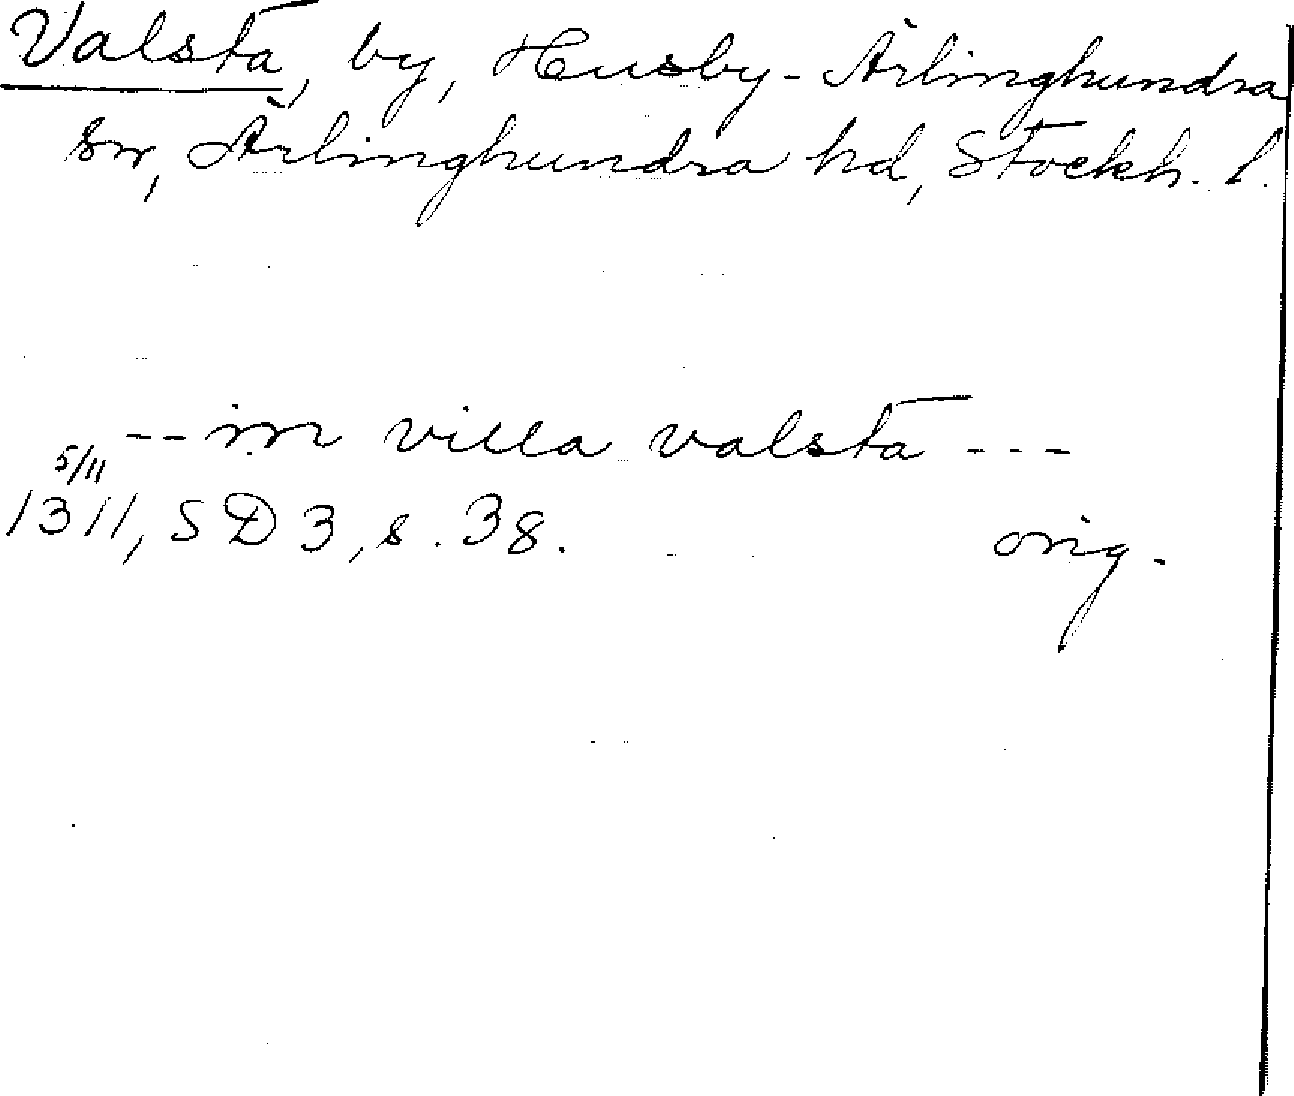 Valsta, by, Husby-Ärlinghundra
sn, Ärlinghundra hd, Stockh. l.
-- in villa valsta ---
5/11
1311, SD 3, s. 38. orig.